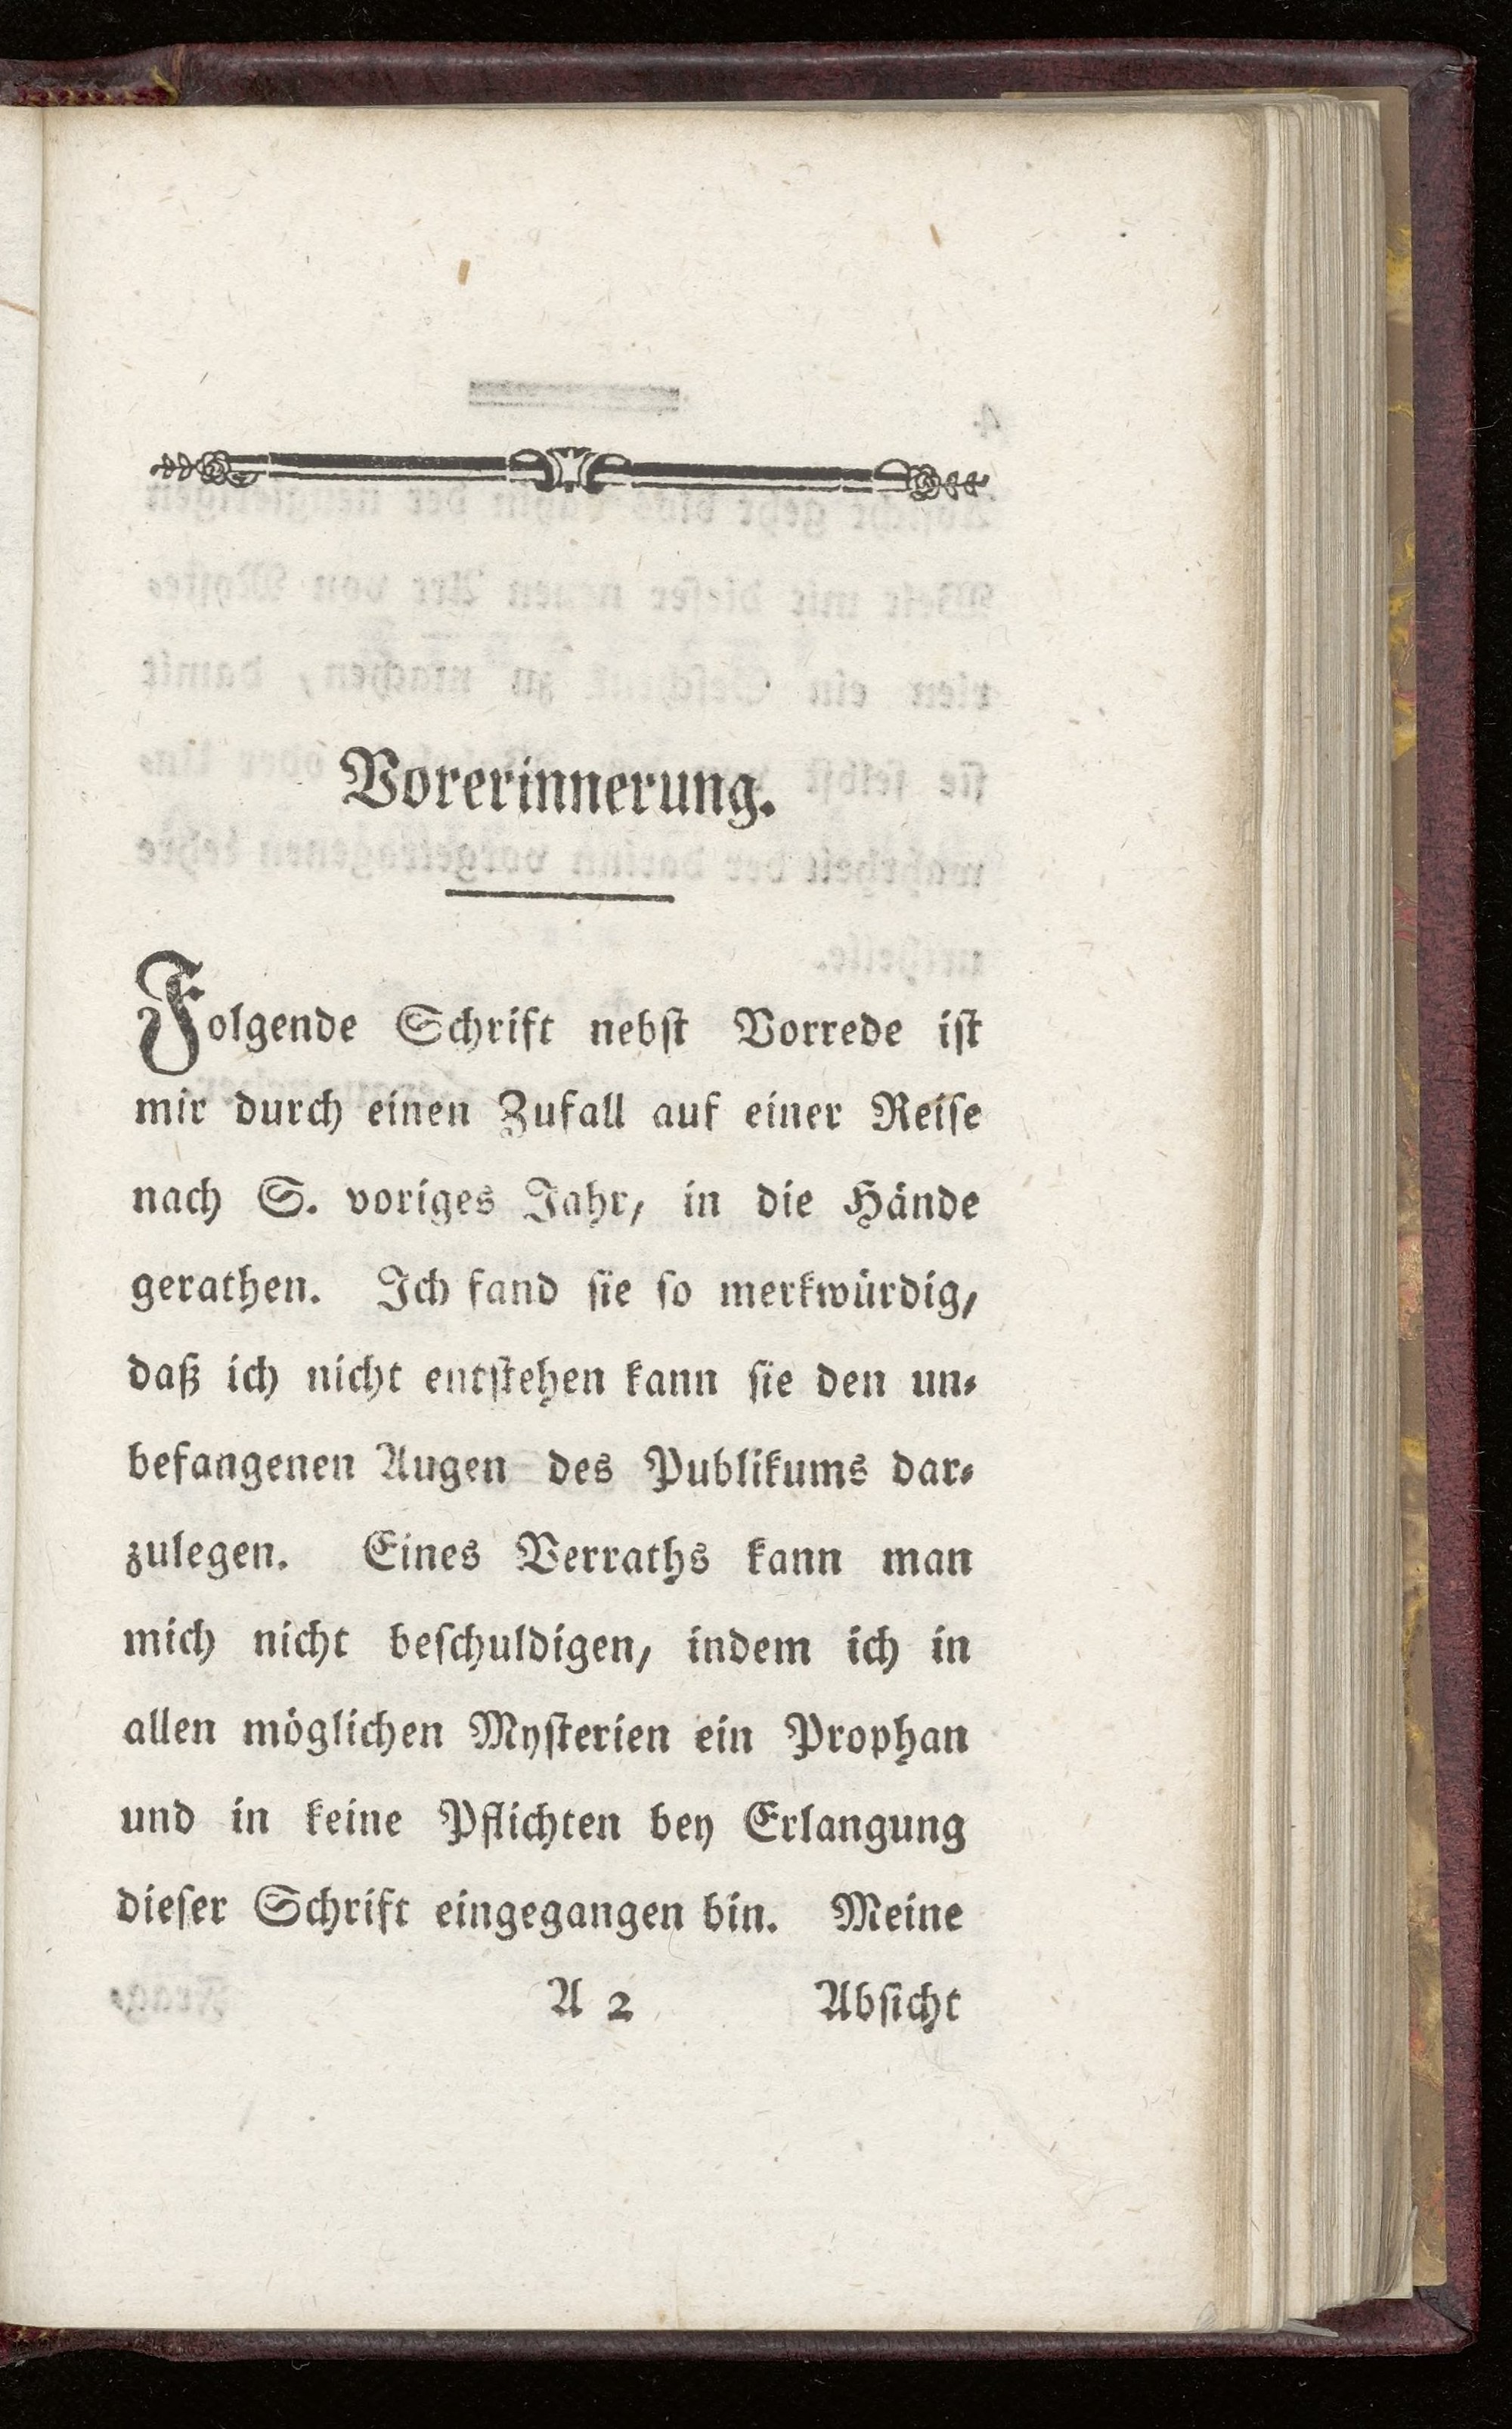 Vorerinnerung.
Folgende Schrift nebſt Vorrede iſt
mir durch einen Zufall auf einer Reiſe
nach S. voriges Jahr, in die Hände
gerathen. Ich fand ſie ſo merkwürdig,
daß ich nicht entſtehen kann ſie den un⸗
befangenen Augen des Publikums dar⸗
zulegen. Eines Verraths kann man
mich nicht beſchuldigen, indem ich in
allen möglichen Myſterien ein Prophan
und in keine Pflichten bey Erlangung
dieſer Schrift eingegangen bin. Meine
A 2 Abſicht